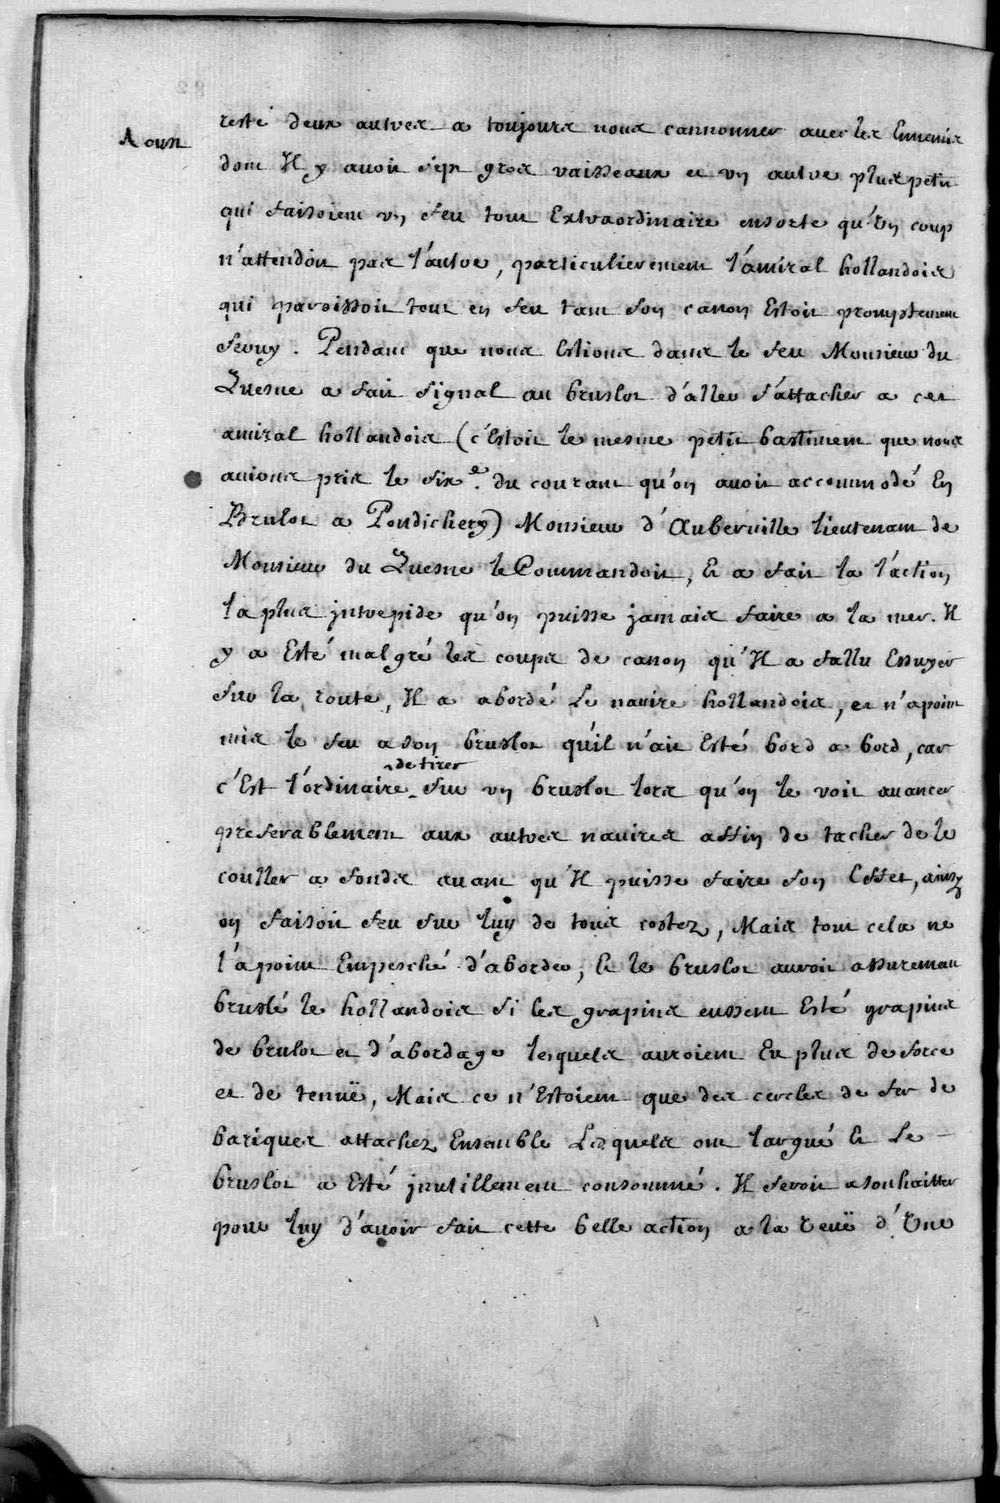 Aoust
resté deux autres a toujours nous cannonner avec les Ennemis
dont Il y avoit sept gros vaisseaux et vn autre plus petit
qui faisoient vn feu tout Extraordinaire ensorte qu'vn coup
n'attendoit pas l'autre, particulierement l'amiral hollandois
qui paroissoit tout en feu tant son canon Estoit promptement
servy. Pendant que nous Estions dans le feu Monsieur du
Quesne a fait signal au bruslot d'aller s'attacher a cet
amiral hollandois (c'Estoit le mesme petit bastiment que nous
auions pris le six.e du courant qu'on auoit accommodé En
Brulot a Pondichery) Monsieur d'Auberuille lieutenant de
Monsieur du Quesne le Commandoit, Et a fait la l'action
la plus jntrepide qu'on puisse jamais faire a la mer. Il
y a Esté malgré les coups de canon qu'Il a fallu Essuyer
sur la route, Il a abordé le nauire hollandois, et n'a point
mis le feu a son bruslot qu'il n'ait Esté bord a bord, car
c'Est l'ordinaire de tirer sur vn bruslot lors qu'on le voit auancer
preferablement aux autres nauires affin de tacher de le
couller a fonds auant qu'Il puisse faire son Effet, ainsy
on faisoit feu sur luy de tous costez, Mais tout cela ne
l'a point Empesché d'aborder, Et le bruslot auroit assurement
bruslé le hollandois si les grapins eussent Esté grapins
de brulot et d'abordage lesquels auroient Eu plus de force
et de tenuë, Mais ce n'Estoient que des cercles de fer de
bariques attachez Ensemble Lesquels ont largué Et Le
bruslot a Esté jnutillement consommé. Il seroit a souhaitter
pour luy d'auoir fait cette belle action a la veuë d'vne